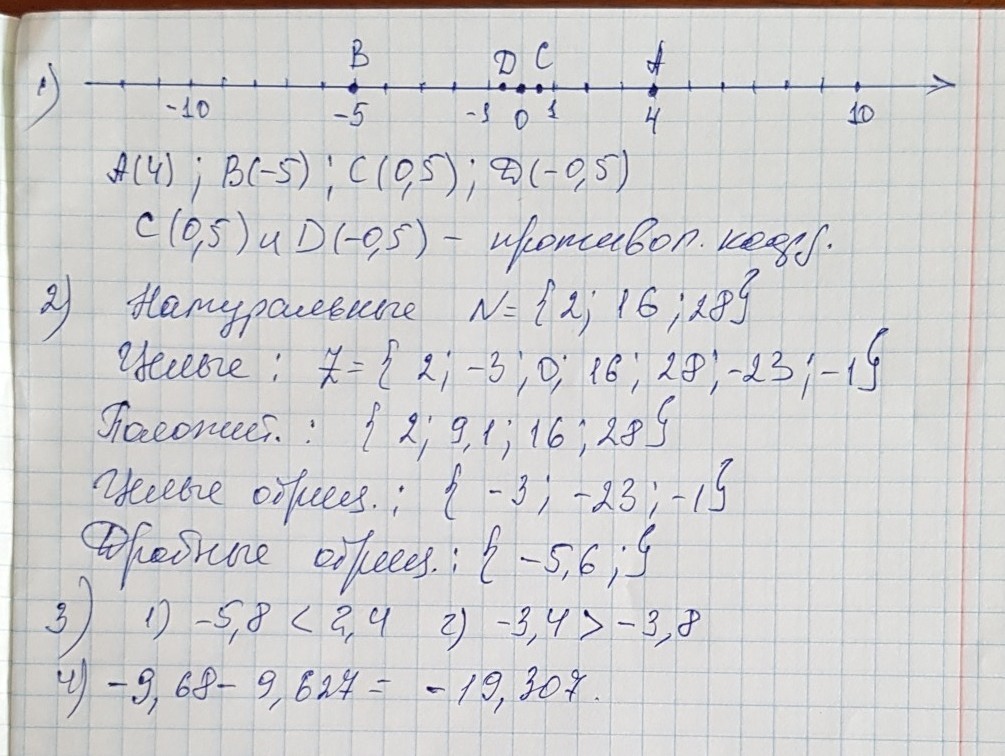 B D C A
1) -10 -5 -1 0 1 4 10
A(4); B(-5); C(0,5); D(-0,5)
C(0,5) и D(-0,5) - противоп. коорд.
2) Натуральные N={2; 16; 28}
Целые: Z={2; -3; 0; 16; 28; -23; -1}
Положит.: {2; 9,1; 16; 28}
Целые отриц.: {-3; -23; -1}
Дробные отриц.: {-5,6;}
3) 1) -5,8 < 2,4 2) -3,4 > -3,8
4) -9,68 - 9,627 = -19,307.